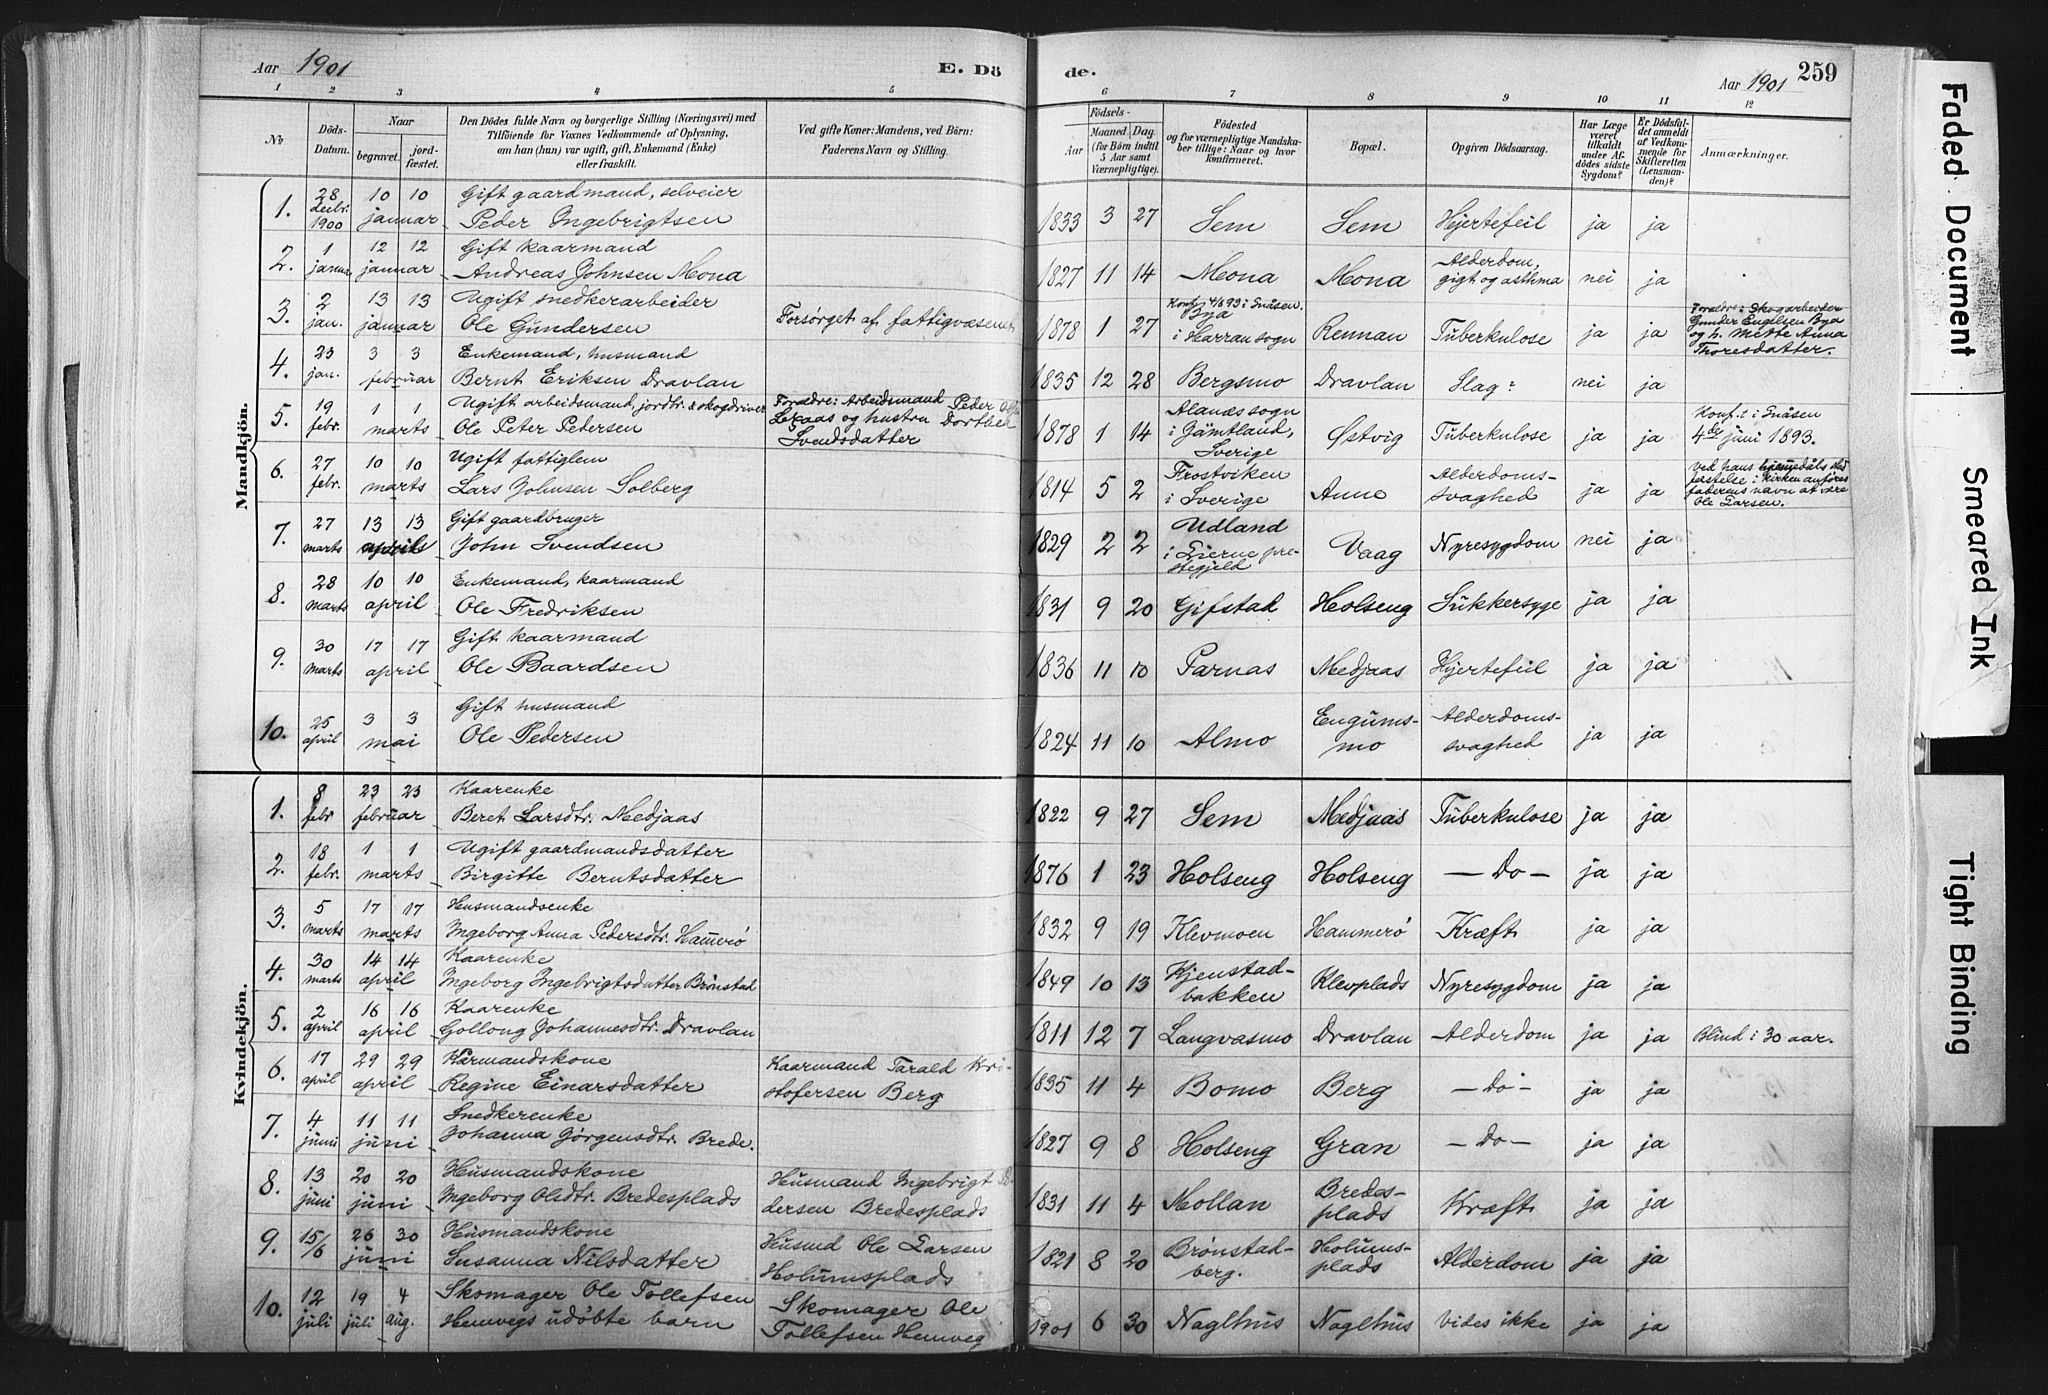 Aar 1901
E. Dö
de.
Aar 1901
259
1 2 3 4 5 6 7 8 9 10 11 12
№
Döds-Datum.
Naar
begravet.
jord-fæstet.
Den Dödes fulde Navn og borgerlige Stilling (Næringsvei) med
Tilföiende for Voxnes Vedkommende af Oplysning.
om han (hun) var ugift, gift, Enkemand (Enke)
eller fraskilt.
Ved gifte Koner: Mandens, ved Börn:
Faderens Navn og Stilling.
Födsels-
Aar
Maaned Dag.
(for Börn indtil
5 Aar samt
Værnepligtige).
Födested
og for værnepligtige Mandska-
ber tillige: Naar og hvor
konfirmeret.
Bopæl.
Opgiven Dödsaarsag.
Har Læge
været
tilkaldt
under Af-
dödes sidste
Sygdom?
Er Dödsfal-
det anmeldt
af Vedkom-
mende for
Skifteretten
(Lensman-
den)?
Anmærkninger.
Mandkjön.
1. 28 decbr. 1900 10 10 januar Gift gaardmand, selveier
Peder Ingebrigtsen 1833 3 27 Sem Sem Hjertefeil ja ja
2. 1 januar 12 12 januar Gift kaarmand
Andreas Johnsen Mona 1827 11 14 Mona Mona Alderdom,
gigt og asthma nei ja
3. 2 jan. 13 13 januar Ugift snedkerarbeider
Ole Gundersen Forsørget af fattigvæsenet 1878 1 27 Konf. 4/6 93 i Snåsen.
Bya
i Harran sogn Rennan Tuberkulose ja ja Forældre: Skogarbeider
Gunder Engelsen Bya
og h. Mette Anna
Thoresdatter.
4. 23 jan. 3 3 februar Enkemand, husmand
Bernt Eriksen Dravlan 1835 12 28 Bergsmo Dravlan Slag nei ja
5. 19 febr. 1 1 marts Ugift arbeidsmand, jordbr. & skogdriver
Ole Peter Pedersen Forældre: Arbeidsmand Peder
og hustru Dorthea
Svendsdatter 1878 1 14 Alanæs sogn
i Jämtland,
Sverige Østvig Tuberkulose ja ja Konf. i Snåsen
4de juni 1893.
6. 27 febr. 10 10 marts Ugift fattiglem
Lars Johnsen Solberg 1814 5 2 Frostviken
i Sverige Anne Alderdoms-
svaghed ja ja Ved hans hjemmedåbs stad
festelse i kirken anføres
faderens navn at være
Ole Larsen.
7. 27 marts 13 13 april Gift gaardbruger
John Svendsen 1829 2 2 Udland
i Lierne pre-
stegjeld Vaag Nyresygdom nei ja
8. 28 marts 10 10 april Enkemand, kaarmand
Ole Fredriksen 1831 9 20 Gifstad Holseng Sukkersyge ja ja
9. 30 marts 17 17 april Gift kaarmand
Ole Baardsen 1836 11 10 Parnas Medjaas Hjertefeil ja ja
10. 25 april 3 3 mai Gift husmand
Ole Pedersen 1824 11 10 Almo Engums-
mo Alderdoms-
svaghed ja ja
Kvindekjön.
1. 8 febr 23 23 februar Kaarenke
Beret Larsdtr. Medjaas 1822 9 27 Sem Medjaas Tuberkulose ja ja
2. 18 febr. 1 1 marts Ugift gaardmandsdatter
Birgitte Berntsdatter 1876 1 23 Holseng Holseng — Do — ja ja
3. 5 marts 17 17 marts Husmandsenke
Ingeborg Anna Pedersdtr. Hammerø 1832 9 19 Klevmoen Hammerø Kræft ja ja
4. 30 marts 14 14 april Kaarenke
Ingeborg Ingebrigtsdatter Brønstad 1849 10 13 Kjenstad-
bakken Klevplads Nyresygdom ja ja
5. 2 april 16 16 april Kaarenke
Gollong Johannesdtr. Dravlan 1811 12 7 Langvasmo Dravlan Alderdom ja ja Blind i 30 aar.
6. 17 april 29 29 april Kårmandskone
Regine Einarsdatter Kaarmand Tarald Kri-
stofersen Berg 1835 11 4 Bomo Berg — Do — ja ja
7. 4 juni 11 11 juni Snedkerenke
Johanna Jørgensdtr. Brede. 1827 9 8 Holseng Gran — Do — ja ja
8. 13 juni 20 20 juni Husmandskone
Ingeborg Olsdtr. Bredesplads Husmand Ingebrigt Pe-
dersen Bredesplads 1831 11 4 Mollan Bredes-
plads Kræft ja ja
9. 15/6 26 30 juni Husmandskone
Susanna Nilsdatter Husmd Ole Larsen
Holumsplads 1821 8 20 Brønstad-
berg. Holums-
plads Alderdom ja ja
10. 12 juli 19 juli 4 aug. Skomager Ole Tollefsen
Hemvegs udøbte barn Skomager Ole
Tollefsen Hemveg 1901 6 30 Naglhus Naglhus vides ikke ja ja
Faded Document
Smeared Ink
Tight Binding